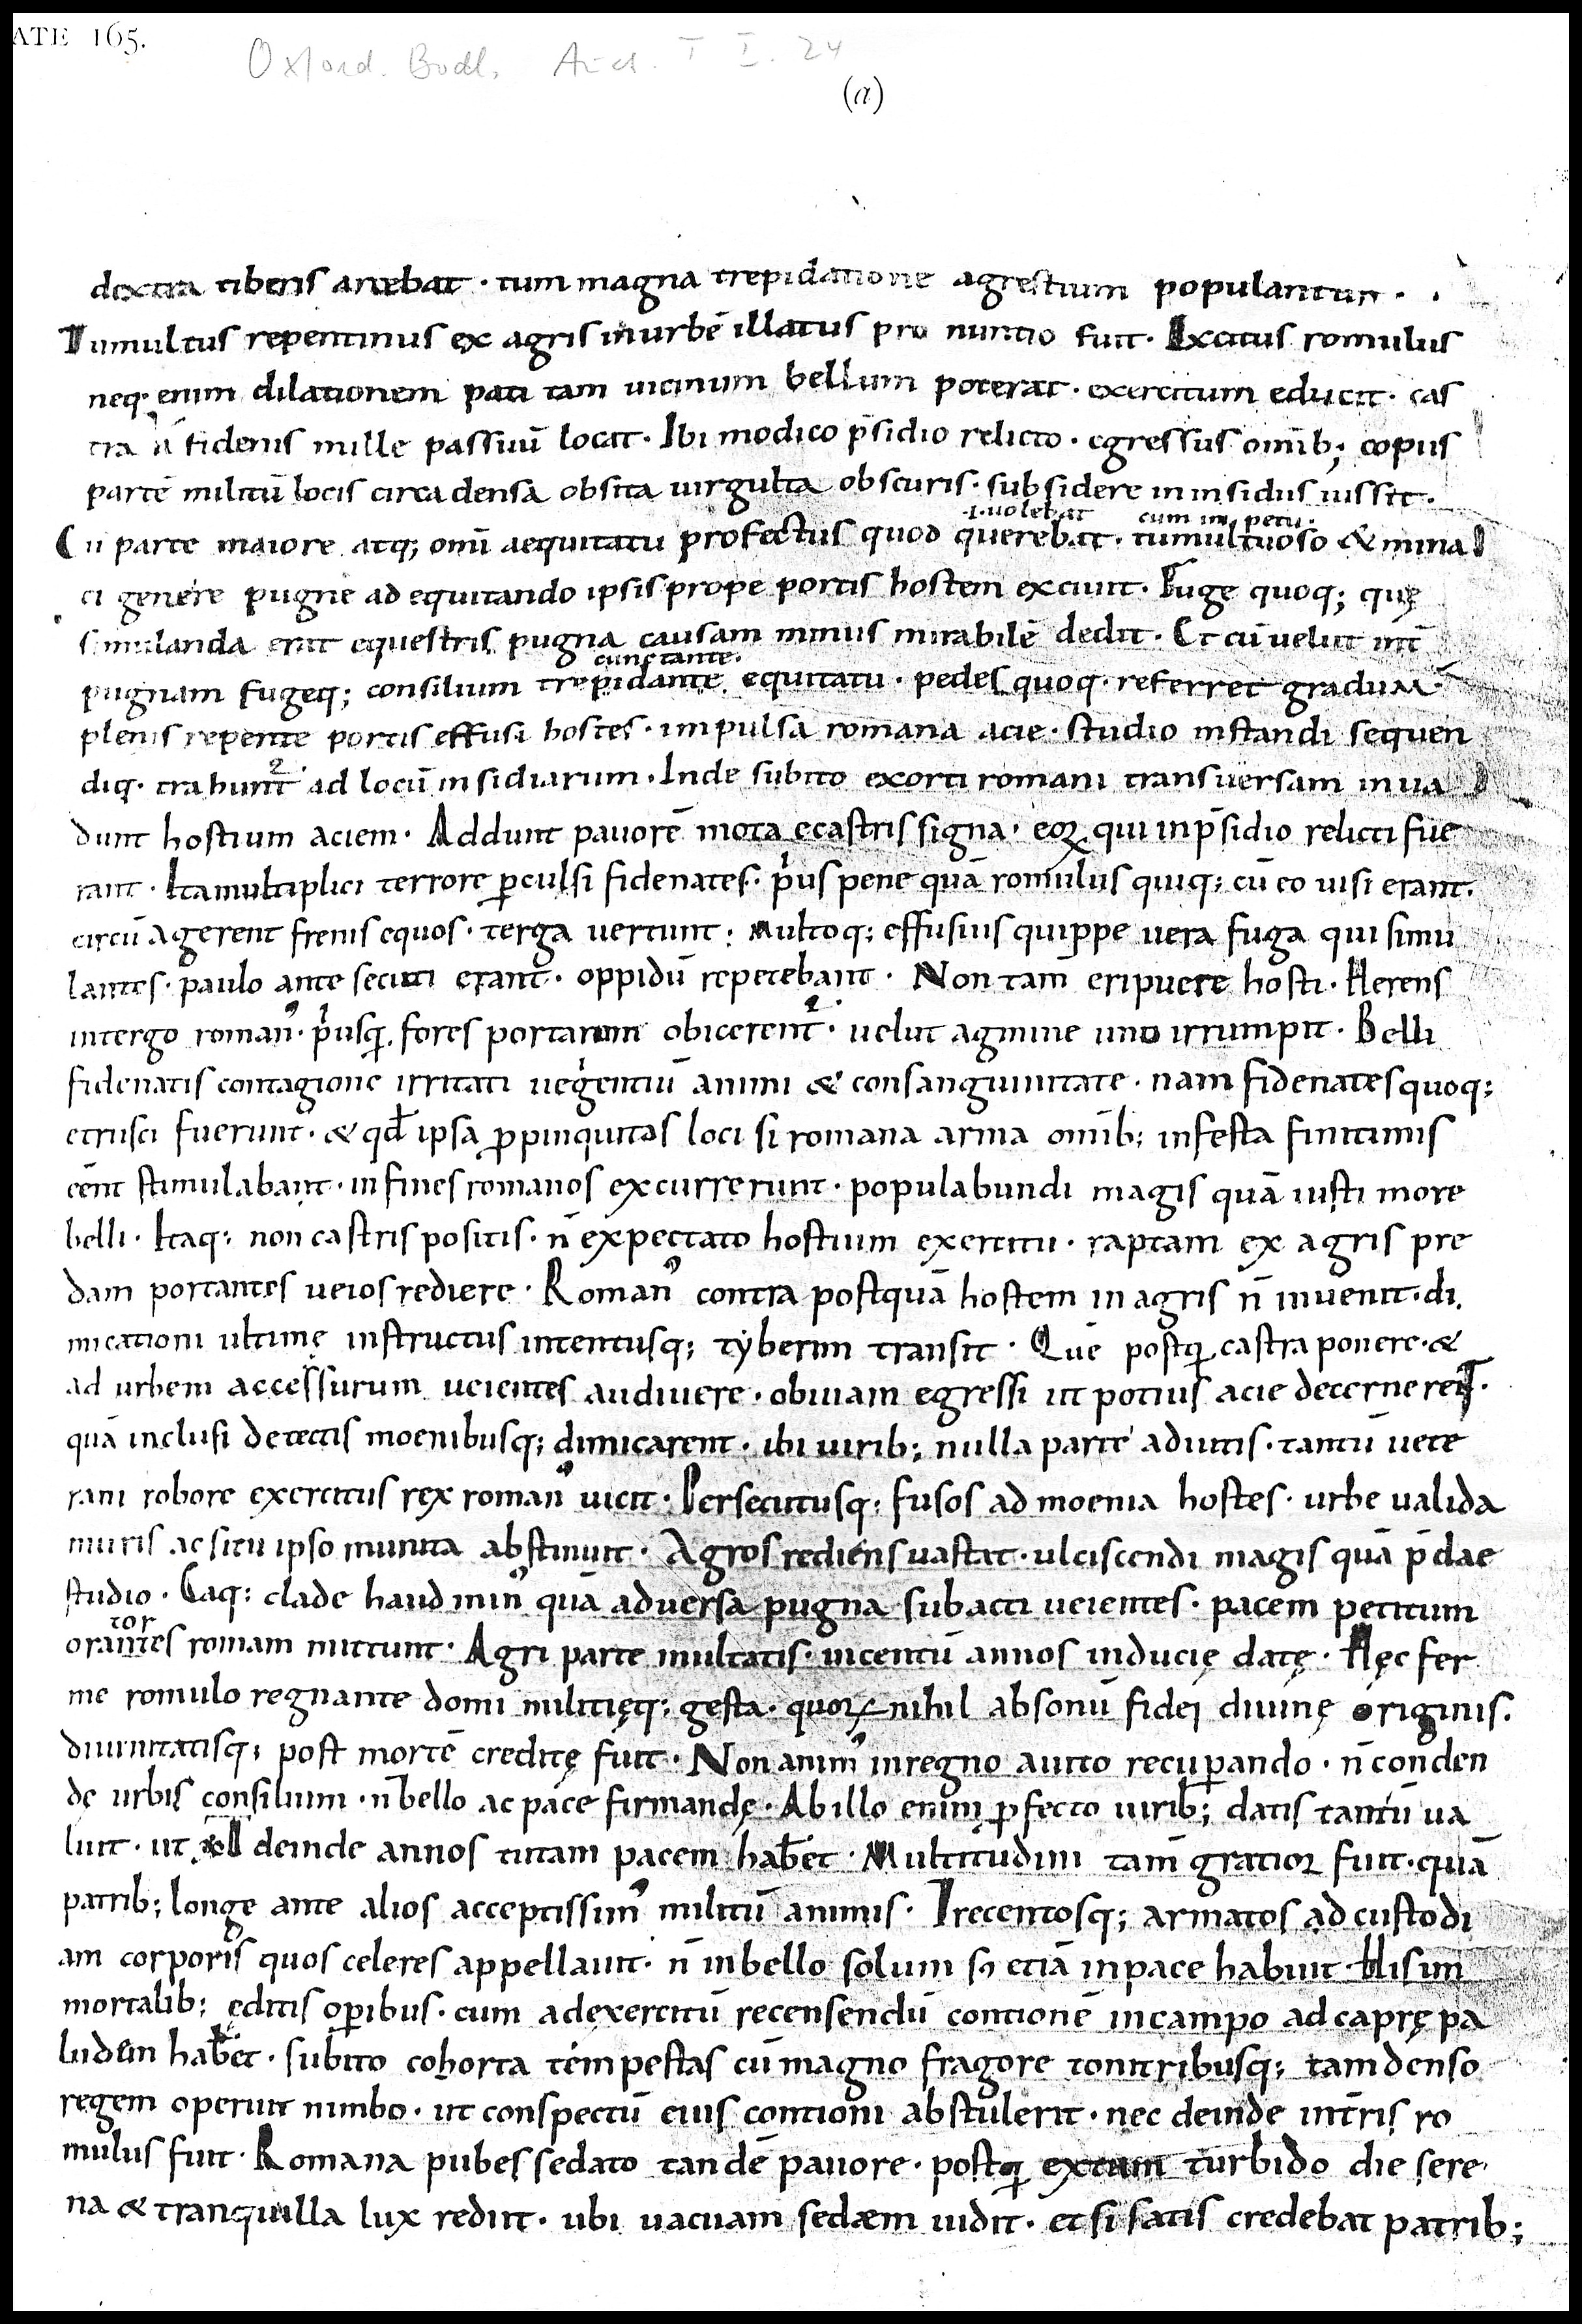 ATE 165.
Oxford. Bodl. Auct. T I. 24
(a)
dextra tiberis arcebat · tum magna trepidatione agrestium populantur ·
Tumultus repentinus ex agris in urbē illatus pro nuntio fuit · Excitus romulus
neq· enim dilationem pati tam uicinum bellum poterat · exercitum educit · cas
tra a fidenis mille passuū locat · Ibi modico p̄sidio relicto · egressus omnib; copiis
partē militū locis circa densa obsita uirgulta obscuris · subsidere in insidiis iussit ·
·i· uolebat cum impetu ·
Cū parte maiore atq; omī aequitatu profectus quod querebat · tumultuoso & mina
ci genere pugne ad equitando ipsis prope portis hostem exciuit · Fuge quoq; quę
simulanda erat equestris pugna causam minus mirabilē dedit · Et cū uelut int̄
cunctante ·
pugnam fugeq; consilium trepidante equitatu · pedes quoq· referret gradum ·
plenis repente portis effusi hostes · impulsa romana acie · studio instandi sequen
diq· trahunt² ad locū insidiarum · Inde subito exorti romani transuersam inua
dunt hostium aciem · Addunt pauorē mota e castris signa · eoꝝ qui in p̄sidio relicti fue
rant · Ita multiplici terrore ꝑculsi fidenates · pͥus pene quā romulus quiq; cū eo uisi erant ·
circū agerent frenis equos · terga uertunt · Multoq; effusius quippe uera fuga qui simu
lantes · paulo ante secuti erant · oppidū repetebant · Non tam̄ eripuere hosti · Herens
in tergo romanꝰ · pͥusꝗ fores portarum obicerent² · uelut agmine uno irrumpit · Belli
fidenatis contagione irritati uegentiū animi & consanguinitate · nam fidenates quoq;
etrusci fuerunt · & qđ ipsa ꝓpinquitas loci si romana arma omīb; infesta finitimis
cēnt stimulabant · in fines romanos excurrerunt · populabundi magis quā iusti more
belli · Itaq; non castris positis · n̄ expectato hostium exercitu · raptam ex agris pre
dam portantes ueios rediere · Romanꝰ contra postquā hostem in agris n̄ inuenit · di
micationi ultimę instructus intentusq; tyberim transit · Quē postꝗ castra ponere · &
ad urbem accessurum ueientes audiuere · obuiam egressi ut potius acie decernerēt ·
quā inclusi de tectis moenibusq; dimicarent · ibi uirib; nulla parte adiutis · tantū uete
rani robore exercitus rex romanꝰ uicit · Persecutusq; fusos ad moenia hostes · urbe ualida
muris ac situ ipso munita abstinuit · Agros rediens uastat · ulciscendi magis quā p̄dae
studio · Eaq; clade haud minꝰ quā aduersa pugna subacti ueientes · pacem petitum
tor
orantes romam mittunt · Agri parte multatis · in centū annos inducię datę · Hęc fer
me romulo regnante domi militięq; gesta · quoꝝ nihil absonū fidei diuinę originis ·
diuinitatisq; post mortē creditę fuit · Non animꝰ in regno auito recuꝑando · n̄ conden
de urbis consilium · n̄ bello ac pace firmandę · Ab illo enim ꝓfecto uirib; datis tantū ua
luit · ut xl deinde annos tutam pacem hab̄et · Multitudini tam̄ gratior fuit · quā
patrib; longe ante alios acceptissimꝰ militū animis · Trecentosq; armatos ad custodi
am corporis quos celeres appellauit · n̄ in bello solum sꝫ etiā in pace habuit · His im
mortalib; editis oꝑibus · cum ad exercitū recensendū contionē in campo ad caprę pa
ludem hab̄et · subito cohorta tempestas cū magno fragore tonitribusq; tam denso
regem operuit nimbo · ut conspectū eius contioni abstulerit · nec deinde int̄ris ro
mulus fuit · Romana pubes sedato tandē pauore · postꝗ ex tam turbido die sere
na & tranquilla lux rediit · ubi uacuam sedæm uidit · etsi satis credebat patrib;